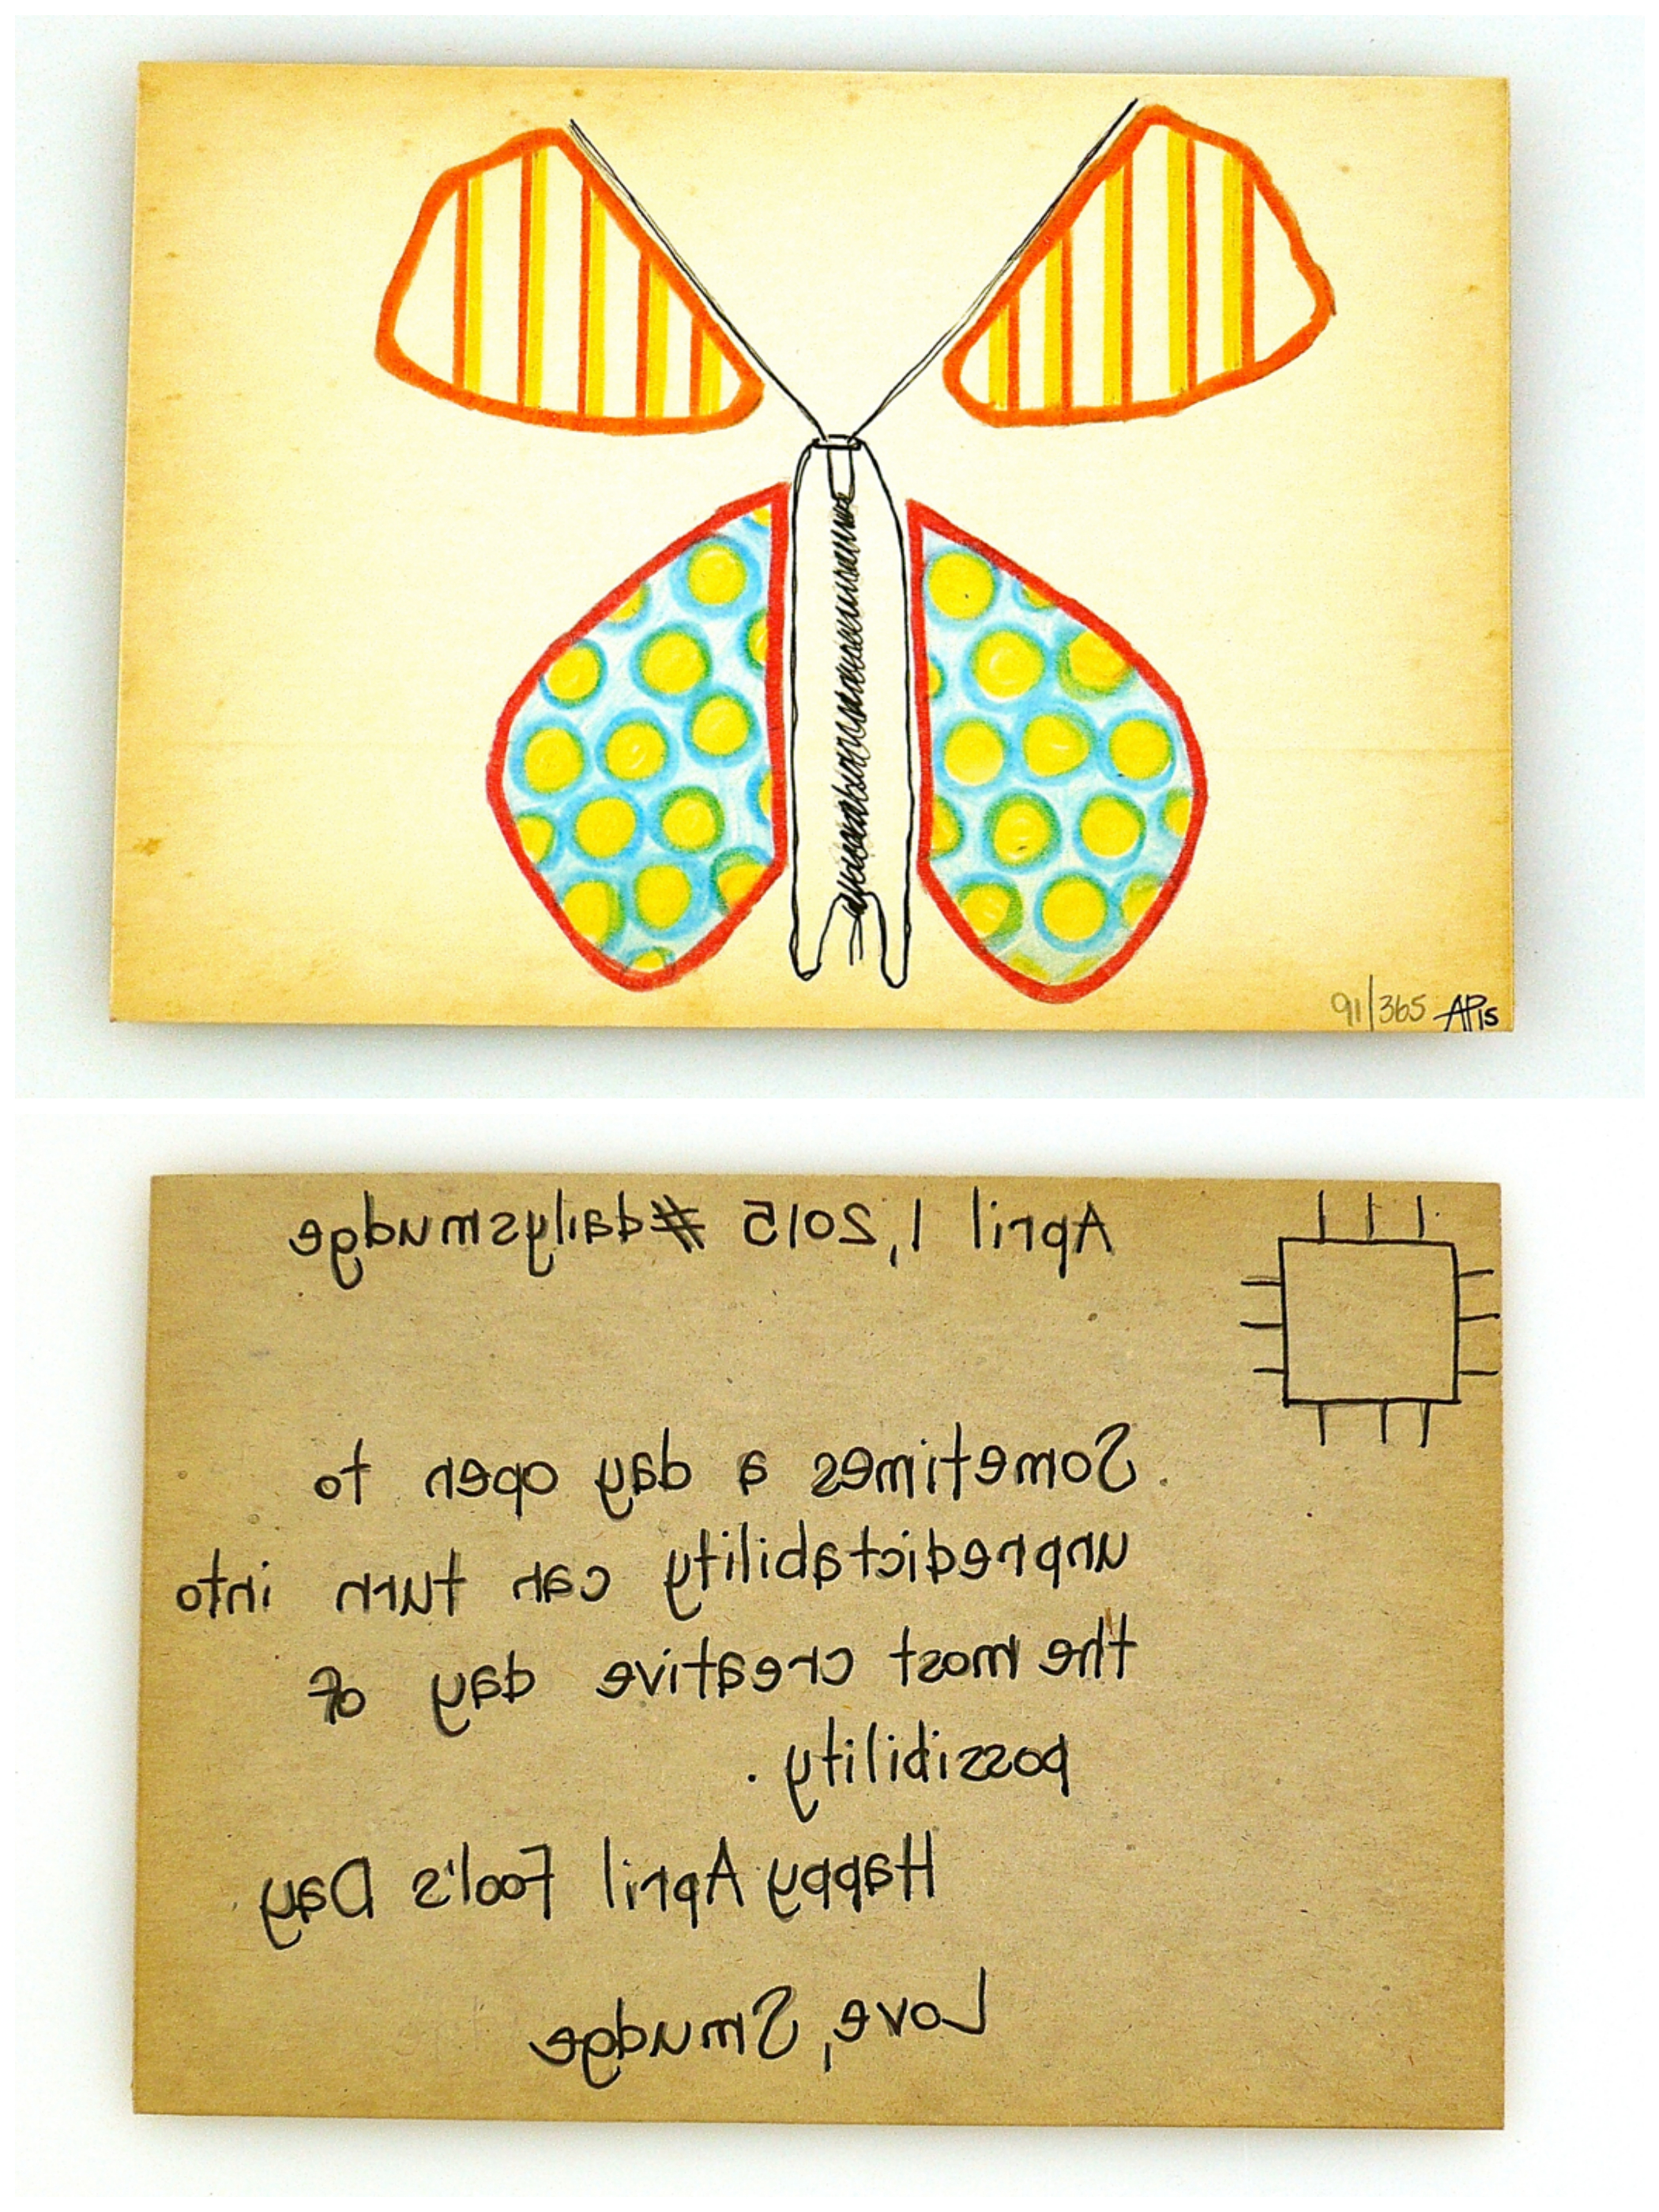 91/365 AP15
April 1, 2015 #dailysmudge
Sometimes a day open to
unpredictability can turn into
the most creative day of
possibility.
Happy April Fool's Day
Love, Smudge